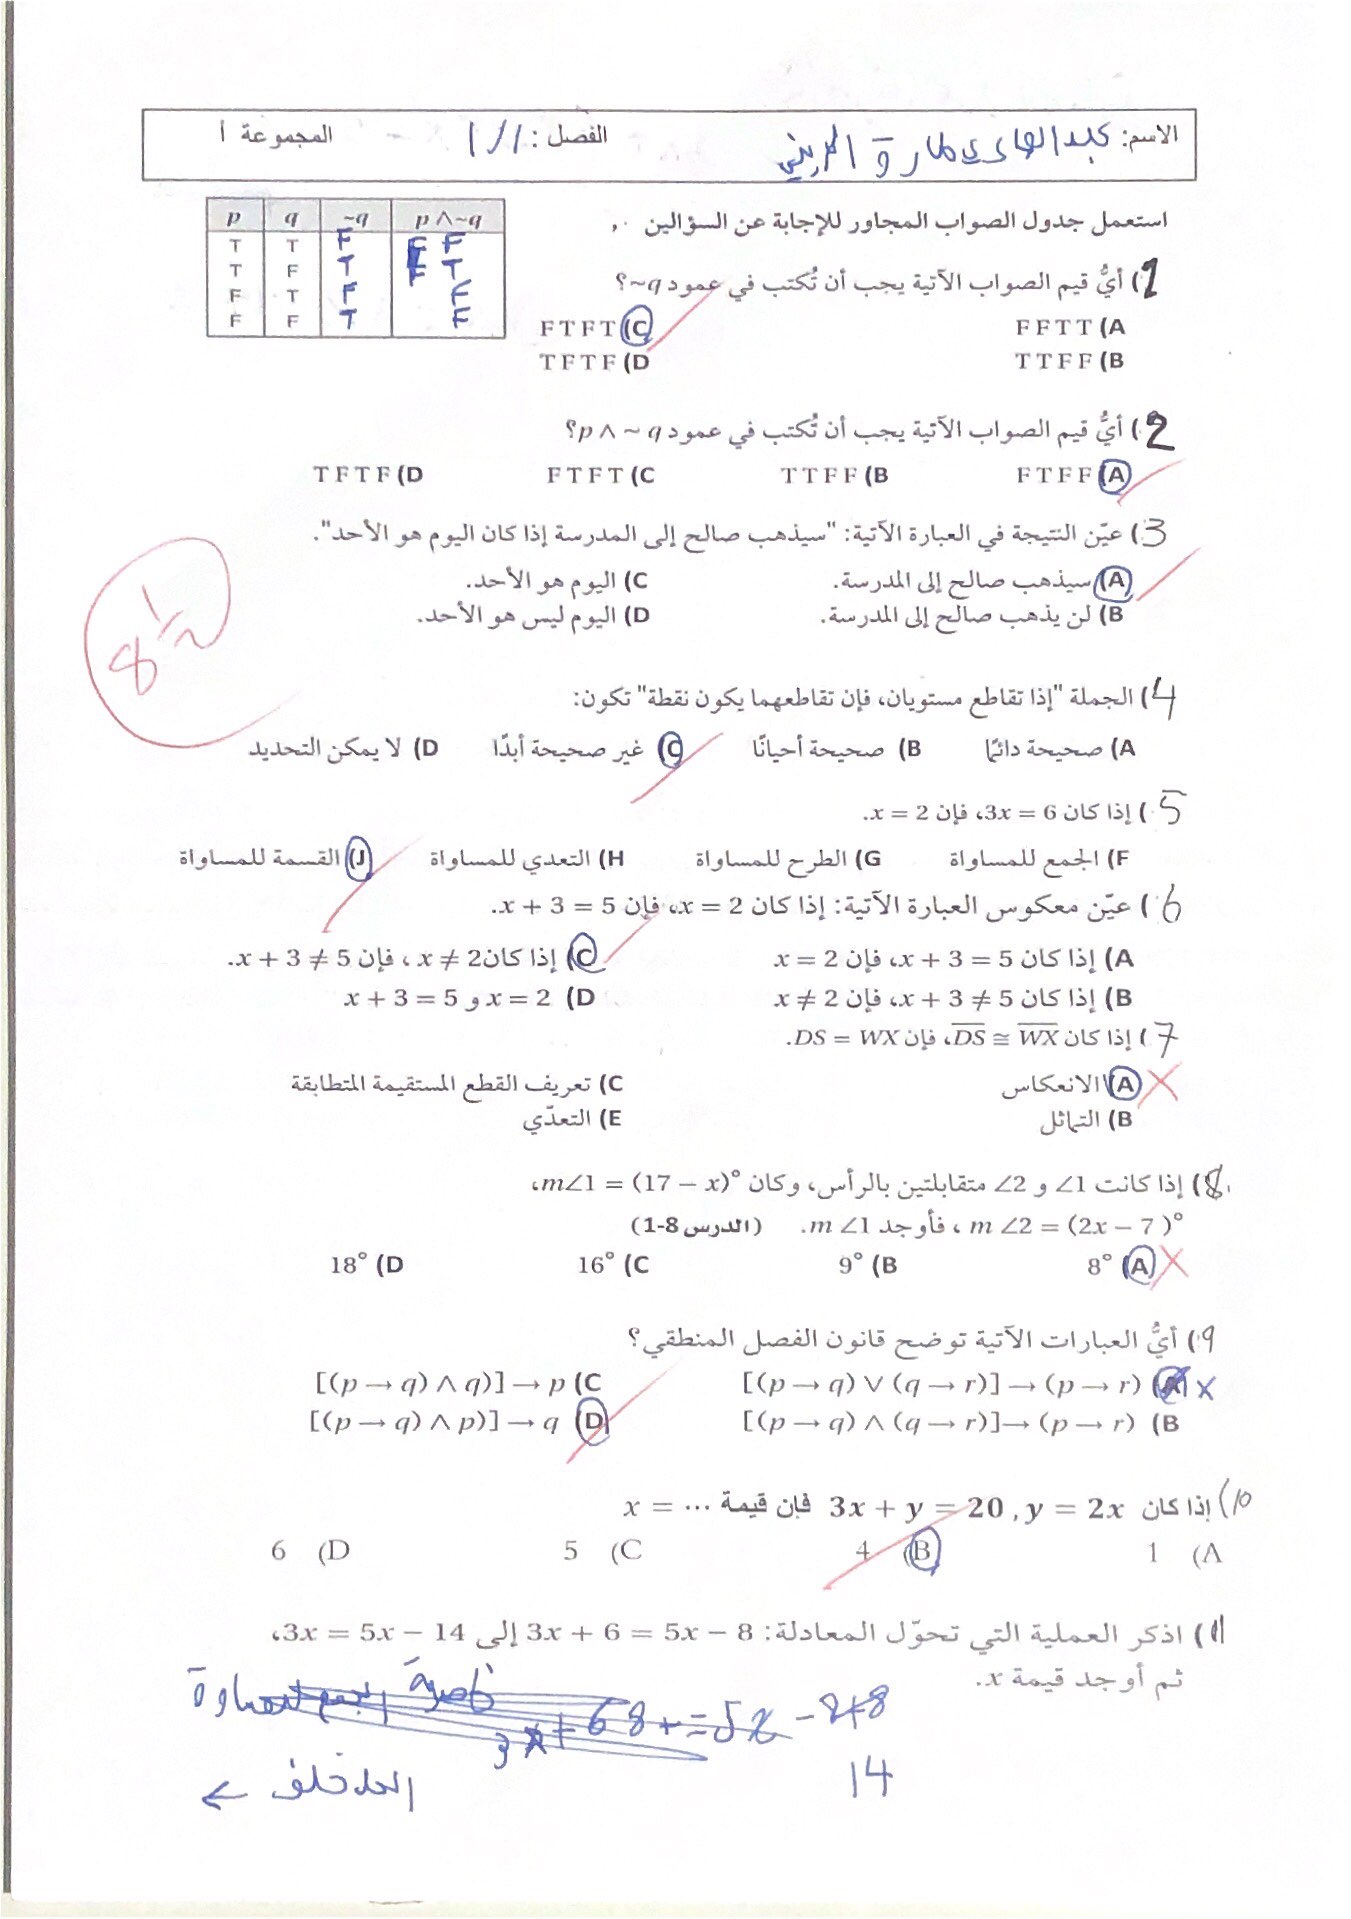 الاسم: عبد الهادي طارق الحربي الفصل: 1/1 المجموعة أ
استعمل جدول الصواب المجاور للإجابة عن السؤالين
p q ~q p ∧ ~q
T T F F
T F T T
F T F F
F F T F
1) أيُّ قيم الصواب الآتية يجب أن تُكتب في عمود q~؟
A) F F T T C) F T F T
B) T T F F D) T F T F
2) أيُّ قيم الصواب الآتية يجب أن تُكتب في عمود p ∧ ~ q؟
A) F T F F B) T T F F C) F T F T D) T F T F
3) عيّن النتيجة في العبارة الآتية: "سيذهب صالح إلى المدرسة إذا كان اليوم هو الأحد".
A) سيذهب صالح إلى المدرسة. C) اليوم هو الأحد.
B) لن يذهب صالح إلى المدرسة. D) اليوم ليس هو الأحد.
8 1/2
4) الجملة "إذا تقاطع مستويان، فإن تقاطعهما يكون نقطة" تكون:
A) صحيحة دائمًا B) صحيحة أحيانًا C) غير صحيحة أبدًا D) لا يمكن التحديد
5) إذا كان 3x = 6، فإن x = 2.
F) الجمع للمساواة G) الطرح للمساواة H) التعدي للمساواة J) القسمة للمساواة
6) عيّن معكوس العبارة الآتية: إذا كان x = 2، فإن x + 3 = 5.
A) إذا كان x + 3 = 5، فإن x = 2 C) إذا كان x ≠ 2، فإن x + 3 ≠ 5.
B) إذا كان x + 3 ≠ 5، فإن x ≠ 2 D) x = 2 و x + 3 = 5
7) إذا كان D̅S̅ ≅ W̅X̅، فإن DS = WX.
A) الانعكاس C) تعريف القطع المستقيمة المتطابقة
B) التماثل E) التعدّي
8) إذا كانت ∠1 و ∠2 متقابلتين بالرأس، وكان m∠1 = (17 − x)°،
m ∠2 = (2x − 7 )° ، فأوجد m ∠1. (الدرس 8-1)
A) 8° B) 9° C) 16° D) 18°
9) أيُّ العبارات الآتية توضح قانون الفصل المنطقي؟
A) [(p → q) ∨ (q → r)] → (p → r) C) [(p → q) ∧ q)] → p
B) [(p → q) ∧ (q → r)] → (p → r) D) [(p → q) ∧ p)] → q
10) إذا كان 3x + y = 20 , y = 2x فإن قيمة ... = x
A) 1 B) 4 C) 5 D) 6
11) اذكر العملية التي تحوّل المعادلة: 3x + 6 = 5x − 8 إلى 3x = 5x − 14،
ثم أوجد قيمة x.
خاصية الجمع للمساواة
3x + 6 8 + = 5x − 8+8
14
الحل خلف ←